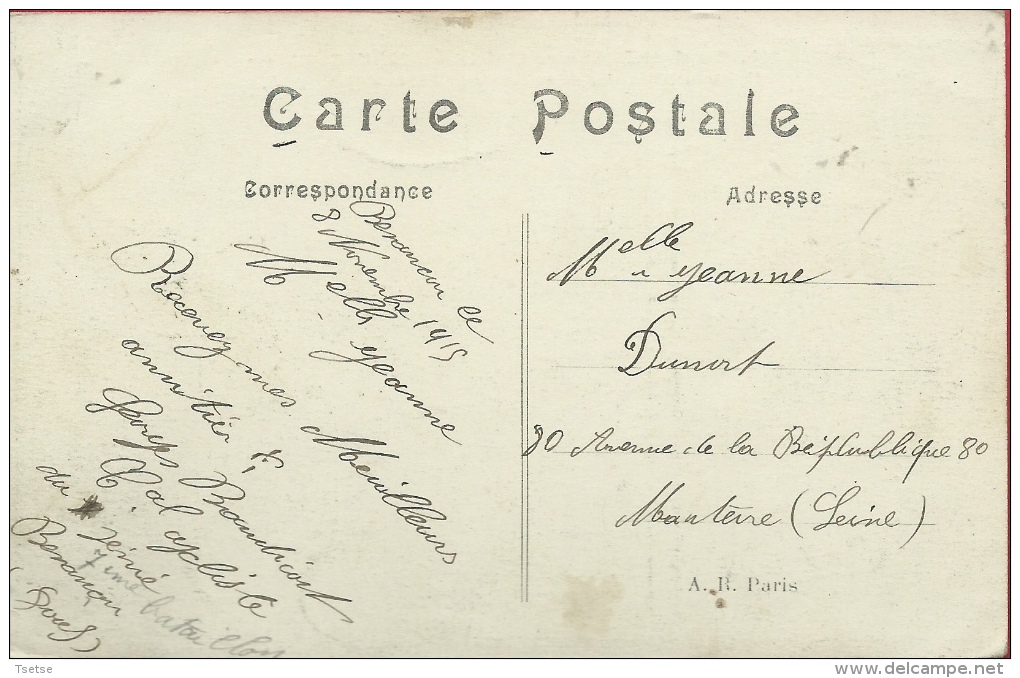 Carte Postale
Correspondance
Adresse
Besancon ce
8 Novembre 1915
Melle Jeanne
Recevez mes Meilleurs
amitiés
Georges Baudicort
Cal cycliste
du 7ème
Besancon
(Doubs)
7ime bataillon
Melle Jeanne
Dunort
80 Avenue de la République 80
Nanterre (Seine)
A. R. Paris
Tsetse
www.delcampe.net